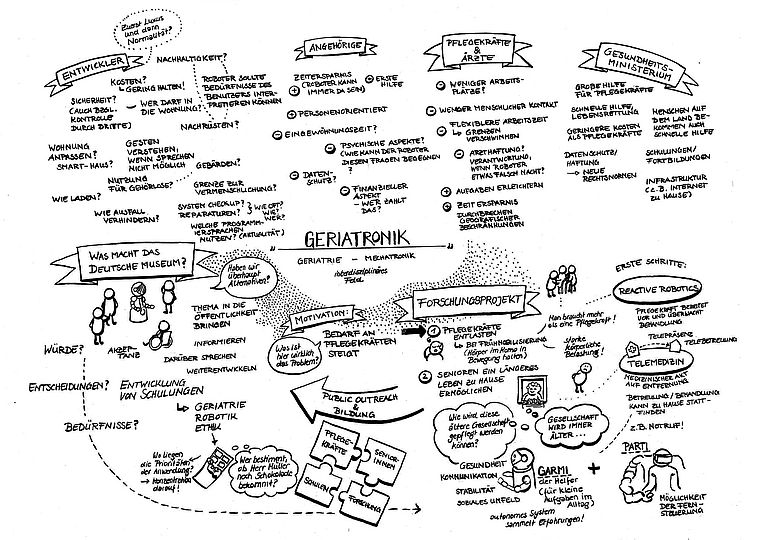 Zuerst Luxus
und dann
Normalität?
ENTWICKLER
NACHHALTIGKEIT?
KOSTEN?
GERING HALTEN!
ROBOTER SOLLTE
BEDÜRFNISSE DES
BENUTZERS INTER-
PRETIEREN KÖNNEN
SICHERHEIT?
(AUCH BZGL.
KONTROLLE
DURCH DRITTE)
WER DARF IN
DIE WOHNUNG?
NACHRÜSTEN?
WOHNUNG
ANPASSEN?
SMART-HAUS?
GESTEN
VERSTEHEN,
WENN SPRECHEN
NICHT MÖGLICH
GEBÄRDEN?
NUTZUNG
FÜR GEHÖRLOSE?
WIE LADEN?
GRENZE ZUR
VERMENSCHLICHUNG?
WIE AUSFALL
VERHINDERN?
SYSTEM CHECKUP?
REPARATUREN?
WIE OFT?
WIE?
WER?
WELCHE PROGRAMM-
IERSPRACHEN
NUTZEN? (AKTUALITÄT)
ANGEHÖRIGE
ZEITERSPARNIS
(ROBOTER KANN
IMMER DA SEIN)
ERSTE
HILFE
PERSONENORIENTIERT
EINGEWÖHNUNGSZEIT?
PSYCHISCHE ASPEKTE?
(WIE KANN DER ROBOTER
DIESEN FRAGEN BEGEGNEN
?
DATEN-
SCHUTZ?
FINANZIELLER
ASPEKT
- WER ZAHLT
DAS?
PFLEGEKRÄFTE
&
ÄRZTE
WENIGER ARBEITS-
PLÄTZE?
WENIGER MENSCHLICHER KONTAKT
FLEXIBLERE ARBEITSZEIT
GRENZEN
VERSCHWIMMEN
ARZTHAFTUNG?
VERANTWORTUNG,
WENN ROBOTER
ETWAS FALSCH MACHT?
AUFGABEN ERLEICHTERN
ZEITERSPARNIS
DURCHBRECHEN
GEOGRAFISCHER
BESCHRÄNKUNGEN
GESUNDHEITS-
MINISTERIUM
GROßE HILFE
FÜR PFLEGEKRÄFTE
SCHNELLE HILFE,
LEBENSRETTUNG
MENSCHEN AUF
DEM LAND BE-
KOMMEN AUCH
SCHNELLE HILFE
GERINGERE KOSTEN
ALS PFLEGEKRÄFTE
DATENSCHUTZ/
HAFTUNG
→ NEUE
RECHTSNORMEN
SCHULUNGEN/
FORTBILDUNGEN
INFRASTRUKTUR
(z.B. INTERNET
ZU HAUSE)
„GERIATRONIK"
GERIATRIE – MECHATRONIK
interdisziplinäres
Feld
WAS MACHT DAS
DEUTSCHE MUSEUM?
Haben wir
überhaupt
Alternativen?
AKZEP-
TANZ
THEMA IN DIE
ÖFFENTLICHKEIT
BRINGEN
INFORMIEREN
DARÜBER SPRECHEN
WEITERENTWICKELN
WÜRDE?
ENTSCHEIDUNGEN?
BEDÜRFNISSE?
ENTWICKLUNG
VON SCHULUNGEN
GERIATRIE
ROBOTIK
ETHIK
Wo liegen
die Prioritäten
der Anwendung?
→ Konzentration
darauf!
Wer bestimmt,
ob Herr Müller
noch Schokolade
bekommt?
MOTIVATION:
Was ist
hier wirklich
das Problem?
BEDARF AN
PFLEGEKRÄFTEN
STEIGT
PUBLIC OUTREACH
&
BILDUNG
PFLEGE-
KRÄFTE
SENIOR-
INNEN
SCHULEN
FORSCHUNG
FORSCHUNGSPROJEKT
1 PFLEGEKRÄFTE
ENTLASTEN
BEI FRÜHMOBILISIERUNG
(Körper im Koma in
Bewegung halten)
Man braucht mehr
als eine Pflegekraft!
starke
körperliche
Belastung!
2 SENIOREN EIN LÄNGERES
LEBEN ZU HAUSE
ERMÖGLICHEN
Wie wird diese
ältere Gesellschaft
gepflegt werden
können?
GESELLSCHAFT
WIRD IMMER
ÄLTER...
GESUNDHEIT
KOMMUNIKATION
STABILITÄT
SOZIALES UMFELD
GARMI
der Helfer
(für kleine
Aufgaben im
Alltag)
autonomes System
sammelt Erfahrungen!
+
ERSTE SCHRITTE:
REACTIVE ROBOTICS
PFLEGEKRAFT BEREITET
VOR UND ÜBERWACHT
BEHANDLUNG
TELEPRÄSENZ
TELEBETREUUNG
TELEMEDIZIN
MEDIZINISCHER AKT
AUF ENTFERNUNG
BETREUUNG / BEHANDLUNG
KANN ZU HAUSE STATT-
FINDEN
z.B. NOTRUF!
PARTI
MÖGLICHKEIT
DER FERN-
STEUERUNG